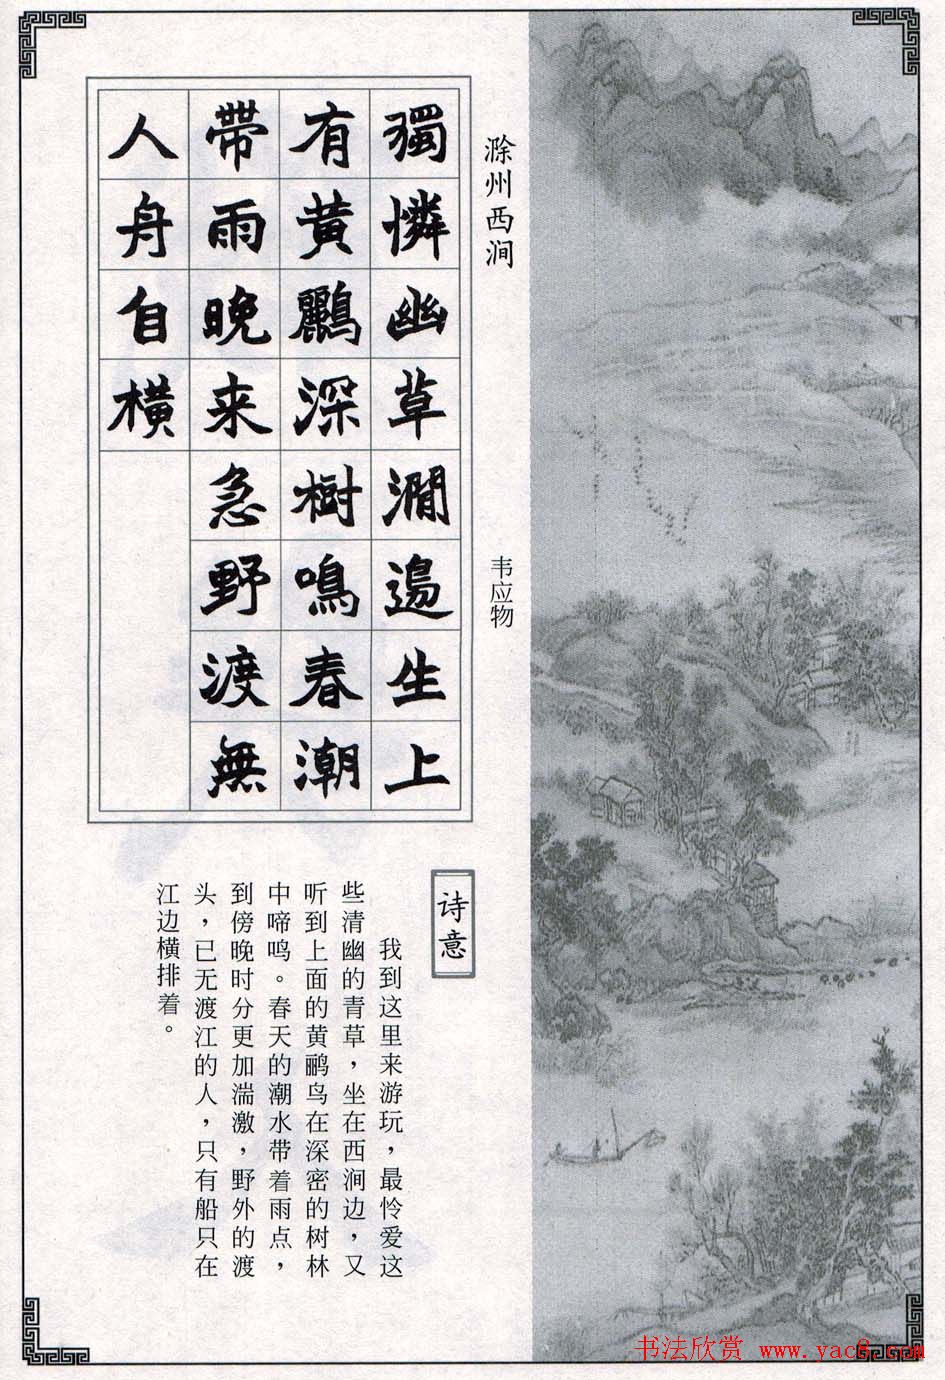 滁州西涧
韦应物
獨憐幽草澗邊生上
有黃鸝深樹鳴春潮
帶雨晚来急野渡無
人舟自橫
诗意
我到这里来游玩，最怜爱这
些清幽的青草，坐在西涧边，又
听到上面的黄鹂鸟在深密的树林
中啼鸣。春天的潮水带着雨点，
到傍晚时分更加湍激，野外的渡
头，已无渡江的人，只有船只在
江边横排着。
书法欣赏 www.yac8.com